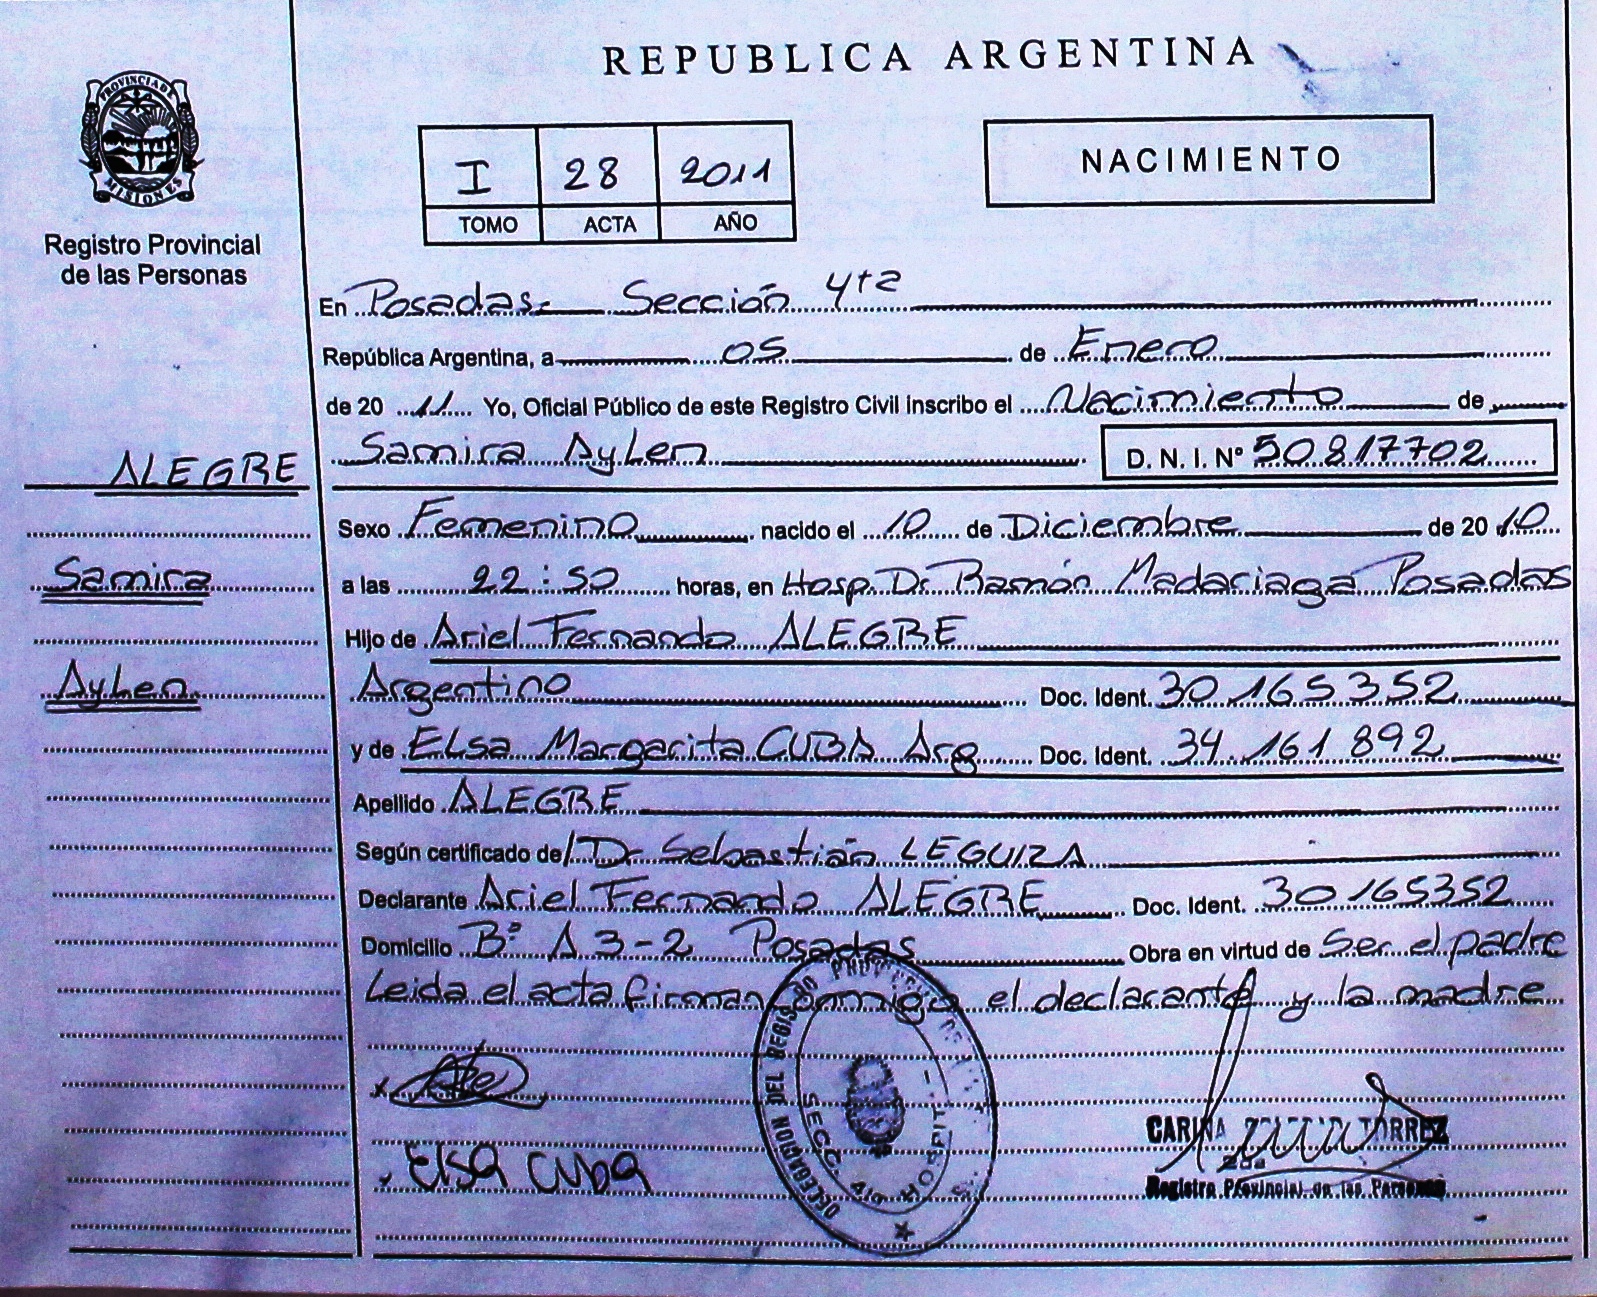 REPUBLICA ARGENTINA
PROVINCIA DE MISIONES
Registro Provincial
de las Personas
I 28 2011
TOMO ACTA AÑO
NACIMIENTO
En Posadas- Sección 4ta
República Argentina, a 05 de Enero
de 2011 Yo, Oficial Público de este Registro Civil inscribo el Nacimiento de
Samira Aylen D. N. I. Nº 50817702
ALEGRE
Samira
Aylen
Sexo Femenino nacido el 10 de Diciembre de 2010
a las 22:50 horas, en Hosp. Dr. Ramón Madariaga Posadas
Hijo de Ariel Fernando ALEGRE
Argentino Doc. Ident. 30.165.352
y de Elsa Margarita CUBA Arg Doc. Ident. 34.161.892
Apellido ALEGRE
Según certificado del Dr Sebastián LEGUIZA
Declarante Ariel Fernando ALEGRE Doc. Ident. 30165352
Domicilio Bº A 3-2 Posadas Obra en virtud de Ser el padre
Leida el acta firman conmigo el declarante y la madre
Elsa Cuba
DELEGACION DEL REGISTRO PROVINCIAL DE
SECC. 4ta HOSPIT
CARINA TORREZ
Registro Provincial de las Personas